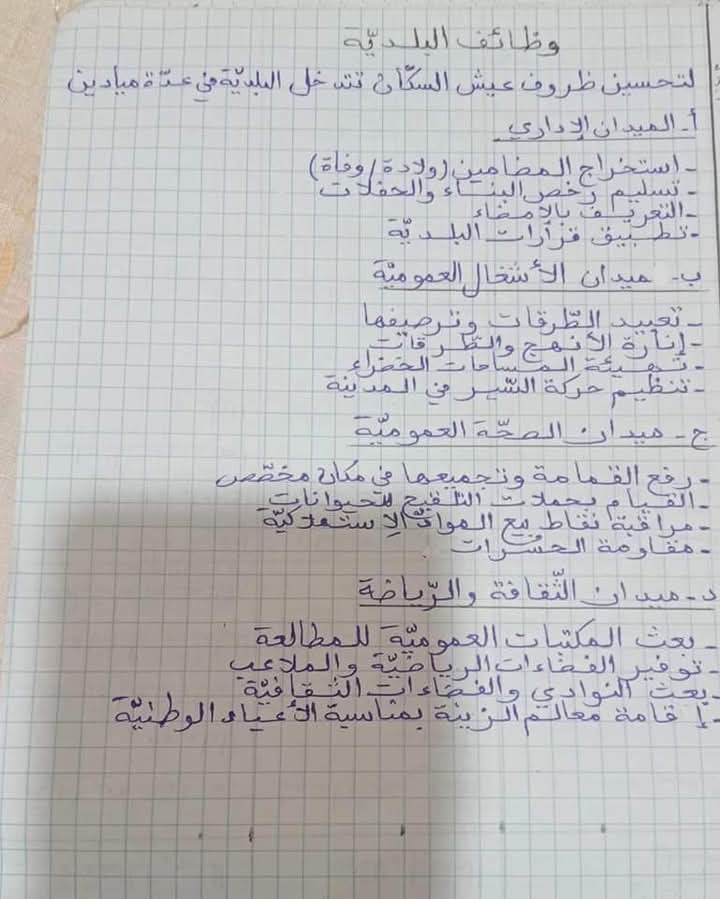 وظائف البلديّة
لتحسين ظروف عيش السكّان تتدخل البلديّة في عدّة ميادين
أ- الميدان الإداري
- استخراج المضامين (ولادة/وفاة)
- تسليم رخص البناء والحفلات
- التعريف بالإمضاء
- تطبيق قرارات البلديّة
ب- ميدان الأشغال العموميّة
- تعبيد الطّرقات وترصيفها
- إنارة الأنهج والطرقات
- تهيئة المساحات الخضراء
- تنظيم حركة السّير في المدينة
ج- ميدان الصحّة العموميّة
- رفع القمامة وتجميعها في مكان مخصّص
- القيام بحملات التلقيح للحيوانات
- مراقبة نقاط بيع الموادّ الإستهلاكيّة
- مقاومة الحشرات
د- ميدان الثّقافة والرّياضة
- بعث المكتبات العموميّة للمطالعة
- توفير الفضاءات الرياضيّة والملاعب
- بعث النوادي والفضاءات الثّقافيّة
- إقامة معالم الزينة بمناسبة الأعياد الوطنيّة